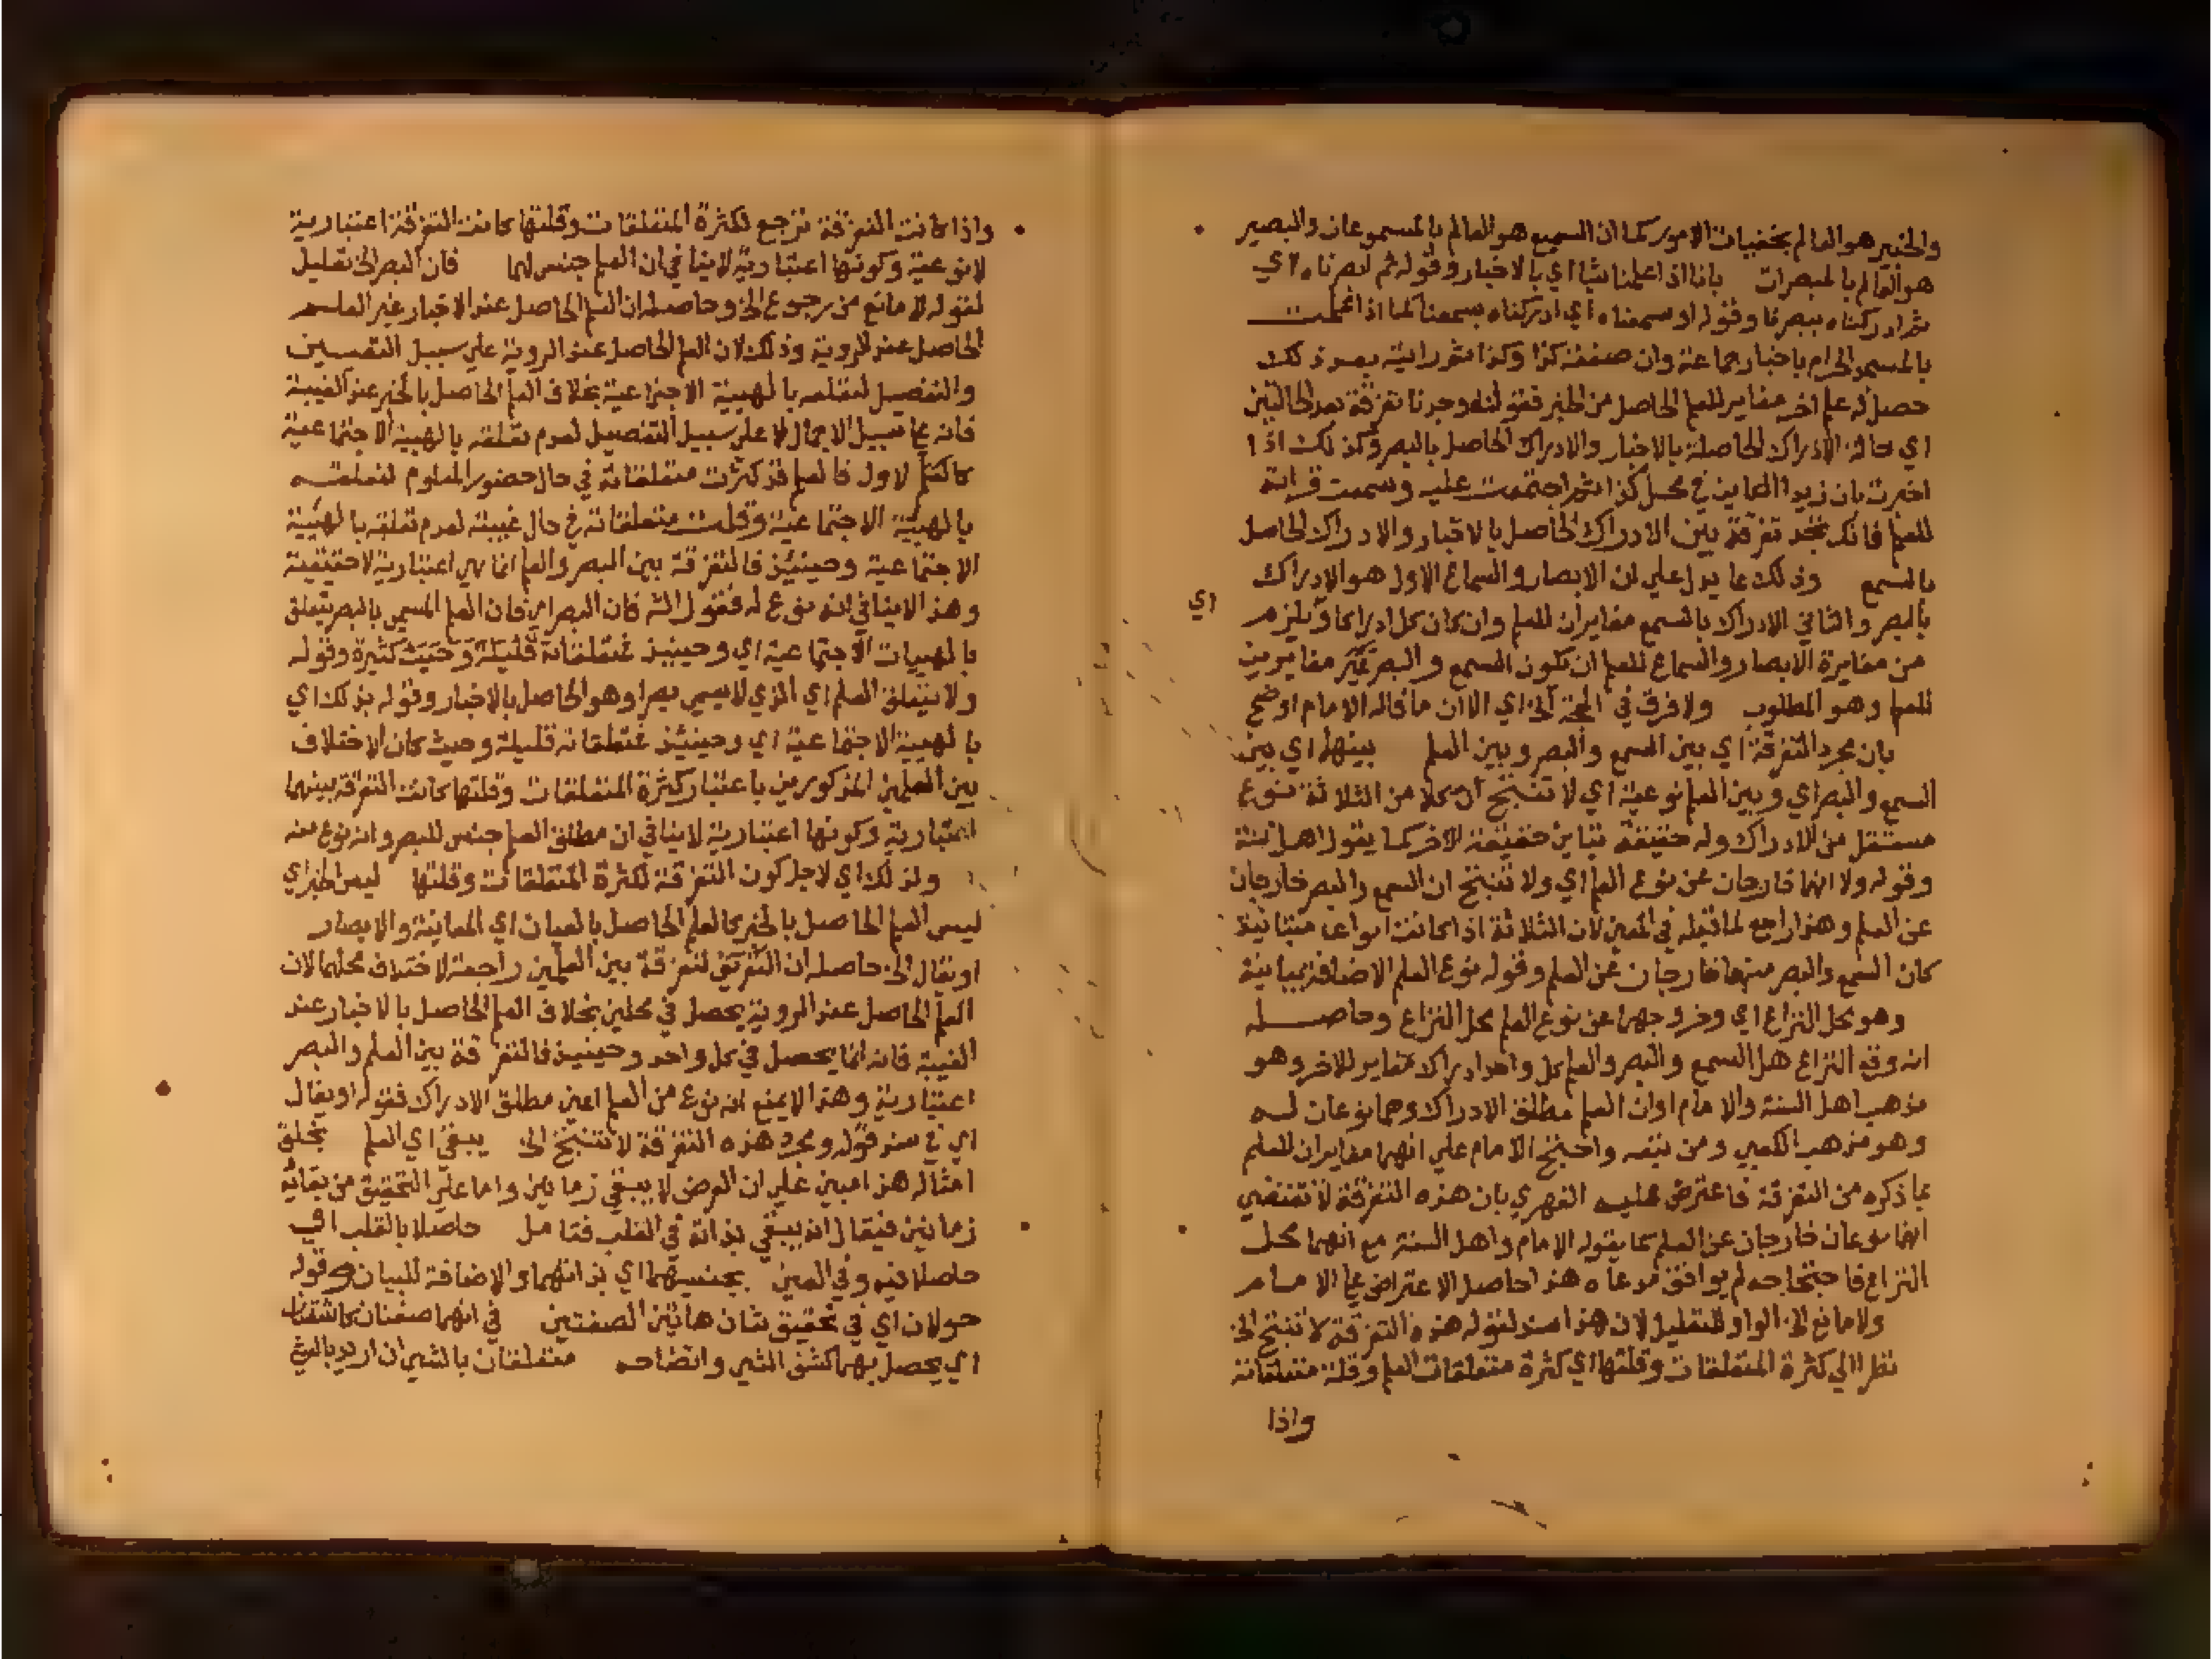 والخبير هو العالم بخفيات الامور كما ان السميع هو العالم بالمسموعات والبصير
هو العالم بالمبصرات بانا اذا علمنا شيا اي بالاخبار وقوله ثم ابصرناه اي
ثم ادركناه ببصرنا وقوله او سمعناه اي ادركناه بسمعنا كما اذا علمت
بالمسجد الحرام باخبار جماعة وان صفته كذا وكذا ثم رايته بعد ذلك
حصل له علم اخر مغاير للعلم الحاصل من الخبر فقوله وجدنا تفرقة بعد الحالتين
اي حالة الادراك الحاصلة بالاخبار والادراك الحاصل بالبصر وكذلك اذا
اخبرت بان زيدا في محل كذا ثم اجتمعت عليه وسمعت قراته
للعلم فانك تجد تفرقة بين الادراك الحاصل بالاخبار والادراك الحاصل
بالسمع وذلك مما يدل علي ان الابصار والسماع الاول هو الادراك
بالبصر والثاني الادراك بالسمع مغايران للعلم وان كان كل ادراكا ويلزم
اي
من مغايرة الابصار والسماع للعلم ان تكون السمع والبصر مغايرين
للعلم وهو المطلوب ولا فرق في الحجة الخ اي الا ان ما قاله الامام اوضح
بان مجرد التفرقة اي بين السمع والبصر وبين العلم بينهما اي بين
السمع والبصر اي وبين العلم نوعية اي لا تنتج ان كلا من الثلاثة نوع
مستقل من الادراك وله حقيقة تباين حقيقة الاخر كما يقول اهل السنة
وقوله ولا انهما خارجان عن نوع العلم اي ولا تنتج ان السمع والبصر خارجان
عن العلم وهذا راجع لما قبله في المعني لان الثلاثة اذا كانت انواعا متباينة
كان السمع والبصر منها خارجان عن العلم وقوله نوع العلم الاضافة بيانية
وهو محل النزاع اي وخروجهما عن نوع العلم محل النزاع وحاصله
انه وقع النزاع هل السمع والبصر والعلم كل واحد ادراك مغاير للاخر وهو
مذهب اهل السنة والامام اوان العلم مطلق الادراك وهما نوعان له
وهو مذهب الكعبي ومن تبعه واحتج الامام علي انهما مغايران للعلم
بما ذكره من التفرقة فاعترض عليه الفهري بان هذه التفرقة لا تقتضي
انهما نوعان خارجان عن العلم كما يقوله الامام واهل السنة مع انهما محل
النزاع فاحتجاجه لم يوافق مدعاه هذا حاصل الاعتراض علي الامام
ولا مانع الخ الواو للتعليل لان هذا سند لقوله هذه التفرقة لا تنتج الخ
نظرا الي كثرة المتعلقات وقلتها اي كثرة متعلقات العلم وقلة متعلقاته
واذا
واذا كانت التفرقة ترجع لكثرة المتعلقات وقلتها كانت التفرقة اعتبارية
لا نوعية وكونها اعتبارية لا ينافي ان العلم جنس لهما فان البصر الخ تعليل
لقوله لا مانع من رجوع الخ وحاصله ان العلم الحاصل عند الاخبار غير العلم
الحاصل عند الروية وذلك لان العلم الحاصل عند الروية علي سبيل التعيين
والتفصيل لتعلقه بالهيية الاجتماعية بخلاف العلم الحاصل بالخبر عند الغيبة
فانه علي سبيل الاجمال لا علي سبيل التفصيل لعدم تعلقه بالهيية الاجتماعية
كالعلم الاول فالعلم قد كثرت متعلقاته في حال حضور المعلوم لتعلقه
بالهيية الاجتماعية وقلت متعلقاته في حال غيبته لعدم تعلقه بالهيية
الاجتماعية وحينيذ فالتفرقة بين البصر والعلم انما هي اعتبارية لا حقيقية
وهذا لا ينافي انه نوع له فقول الشه فان البصر اي فان العلم المسمي بالبصر يتعلق
بالهييات الاجتماعية اي وحينيذ فمتعلقاته كثيرة وقوله
ولا يتعلق العلم اي الذي لا يسمي بصرا وهو الحاصل بالاخبار وقوله بذلك اي
بالهيية الاجتماعية اي وحينيذ فمتعلقاته قليلة وحيث كان الاختلاف
بين العلمين المذكورين باعتبار كثرة المتعلقات وقلتها كانت التفرقة بينهما
اعتبارية وكونها اعتبارية لا ينافي ان مطلق العلم جنس للبصر وانه نوع منه
ولذلك اي لاجل كون التفرقة لكثرة المتعلقات وقلتها ليس الخبر اي
ليس العلم الحاصل بالخبر كالعلم الحاصل بالعيان اي المعاينة والابصار
او يقال الخ حاصله ان التفرقة بين العلمين راجعة لاختلاف محلهما لان
العلم الحاصل عند الروية يحصل في محلين بخلاف العلم الحاصل بالاخبار عند
الغيبة فانه انما يحصل في محل واحد وحينيذ فالتفرقة بين العلم والبصر
اعتبارية وهذا لا يمنع انه نوع من العلم اعني مطلق الادراك فقوله او يقال
اي في سند قوله ومجرد هذه التفرقة لا تنتج الخ يبقي اي العلم بخلق
امثاله هذا مبني علي ان العرض لا يبقي زمانين واما علي التحقيق من بقايه
زمانين فيقال انه يبقي بذاته في القلب فتامل حاصلا بالقلب اي
حاصلا فيه وفي العين بجنسيهما اي بذاتهما والاضافة للبيان وقوله
حولان اي في تحقيق شان هاتين الصفتين في انهما صفتان كاشفتان
اي يحصل بهما كشف الشي واتضاحه متعلقتان بالشي ان اريد بالشي